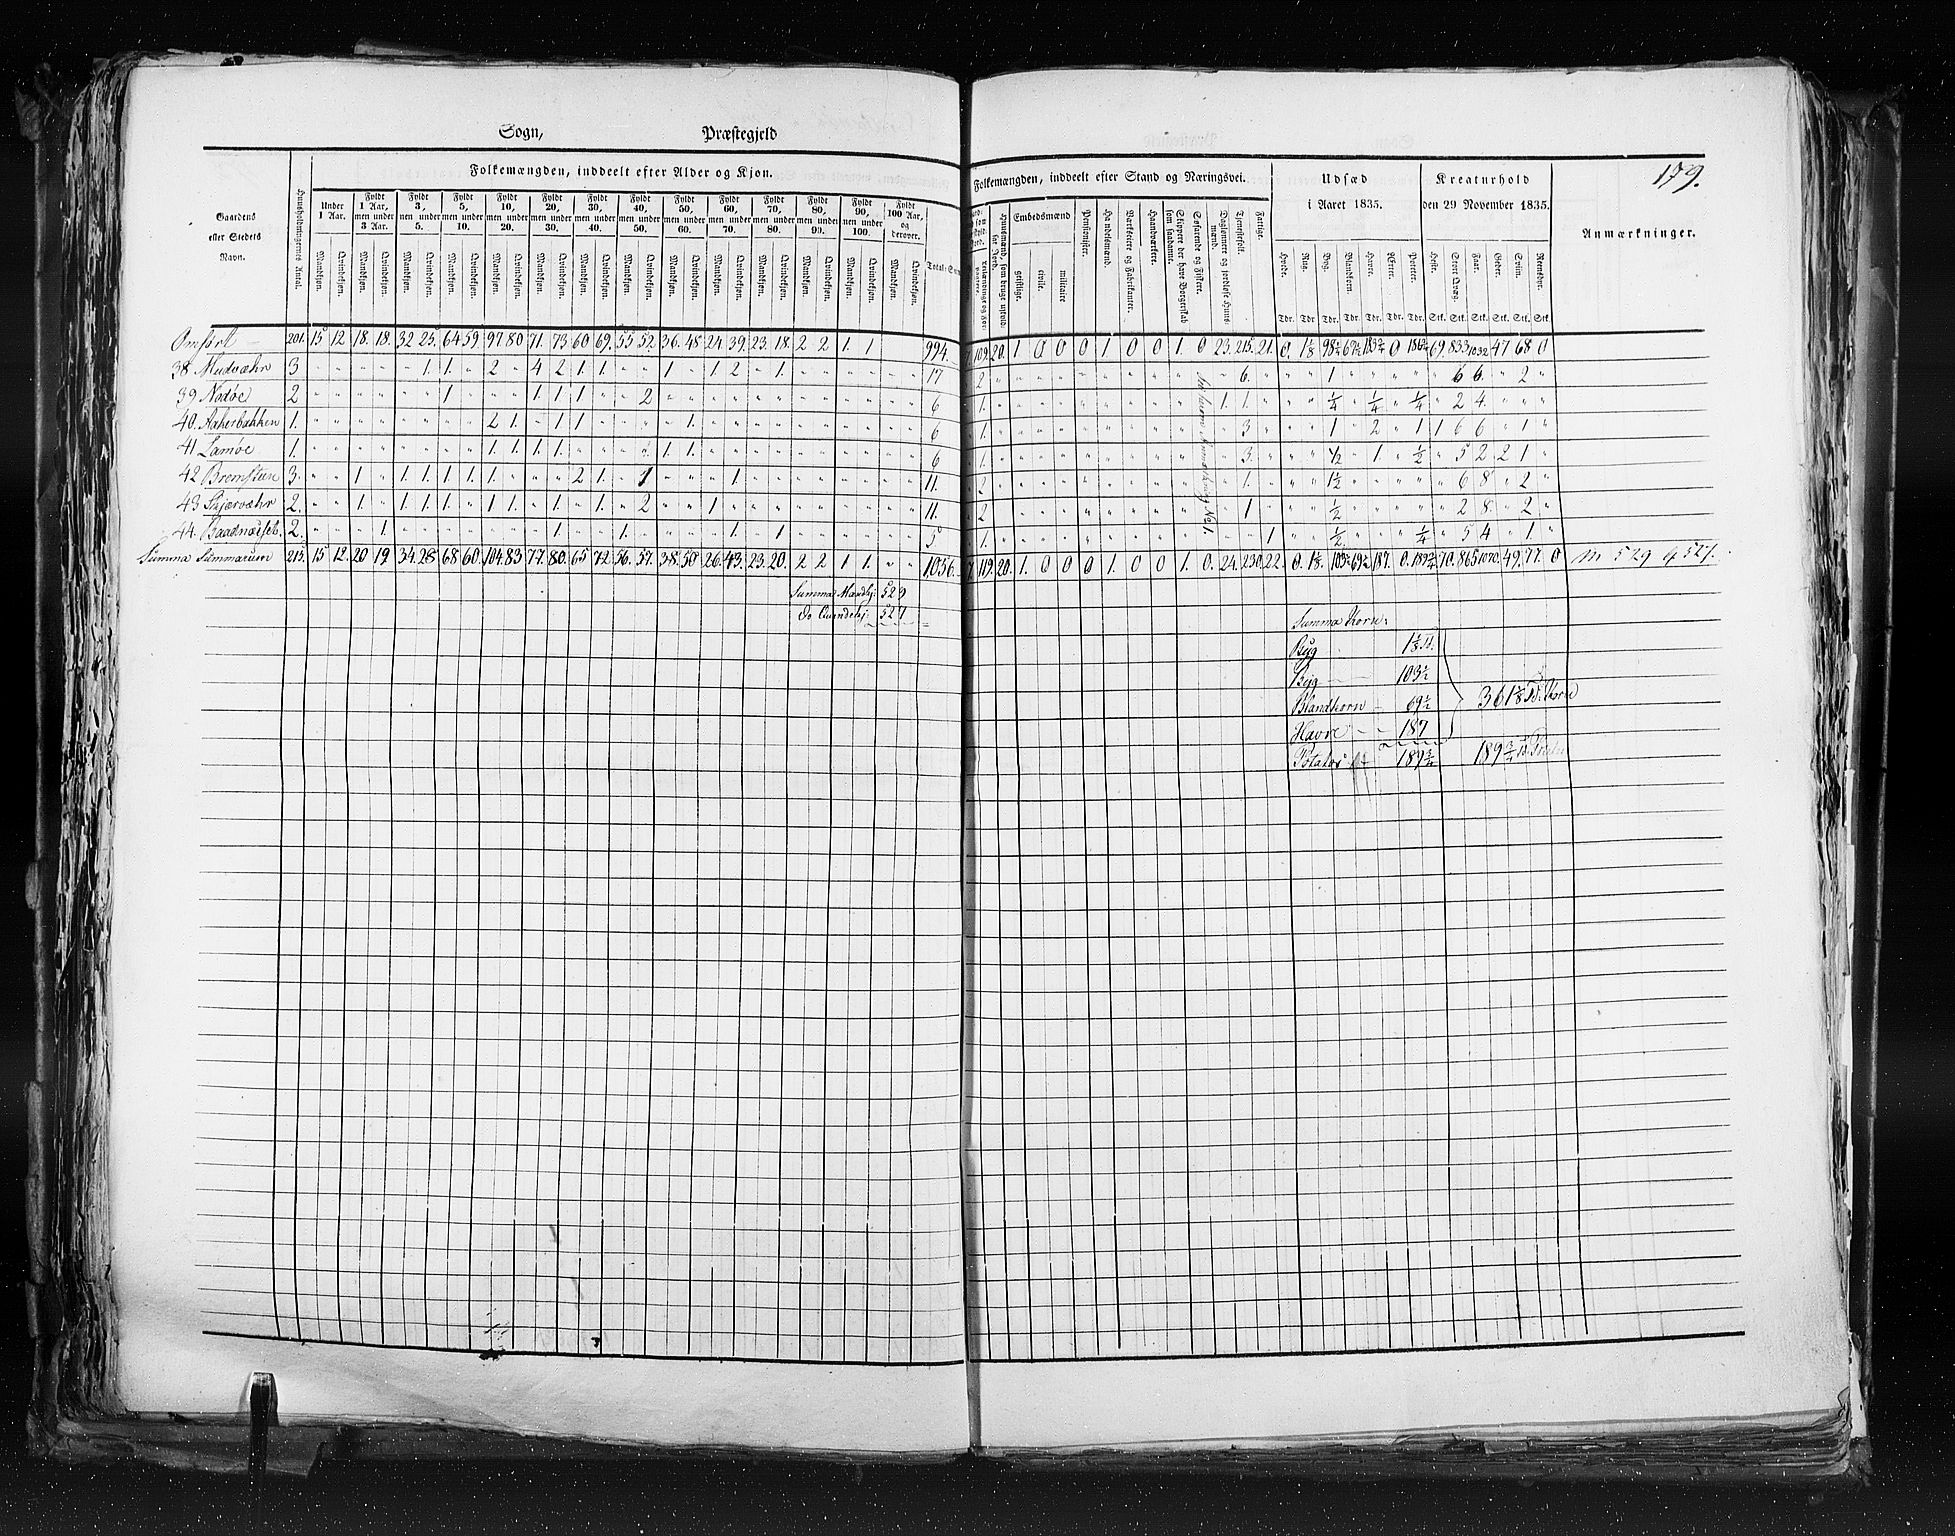 Sogn, Præstegjeld
179.
Folkemængden, inddeelt efter Alder og Kjøn.
Folkemængden, inddeelt efter Stand og Næringsvei.
Udsæd i Aaret 1835.
Kreaturhold den 29 November 1835.
Anmærkninger.
Gaardens eller Stedets Navn.
Huusholdningernes Antal.
Under 1 Aar.
Fyldt 1 Aar, men under 3 Aar.
Fyldt 3, men under 5.
Fyldt 5, men under 10.
Fyldt 10, men under 20.
Fyldt 20, men under 30.
Fyldt 30, men under 40.
Fyldt 40, men under 50.
Fyldt 50, men under 60.
Fyldt 60, men under 70.
Fyldt 70, men under 80.
Fyldt 80, men under 90.
Fyldt 90, men under 100.
Fyldt 100 Aar, og derover.
Mandkjøn. Qvindekjøn. Mandkjøn. Qvindekjøn. Mandkjøn. Qvindekjøn. Mandkjøn. Qvindekjøn. Mandkjøn. Qvindekjøn. Mandkjøn. Qvindekjøn. Mandkjøn. Qvindekjøn. Mandkjøn. Qvindekjøn. Mandkjøn. Qvindekjøn. Mandkjøn. Qvindekjøn. Mandkjøn. Qvindekjøn. Mandkjøn. Qvindekjøn. Mandkjøn. Qvindekjøn. Mandkjøn. Qvindekjøn.
Huusmænd, som bruge udviist Jord.
Embedsmænd
geistlige. civile. militaire
Pensionister.
Handelsmænd.
Værkseiere og Fabrikanter.
Haandværkere.
Skippere der have Borgerskab som saadanne.
Søfarende og Fiskere.
Daglønnere og jordløse Huusmænd.
Tjenestefolk.
Fattige.
Hvede. Rug. Byg. Blandkorn. Havre. Ærter. Poteter. Heste. Stort Qvæg. Faar. Geder. Sviin. Reensdyr.
Tdr. Tdr Tdr. Tdr. Tdr. Tdr. Tdr. Stk. Stk. Stk. Stk. Stk. Stk.
201. 15 12 18. 18. 32 25. 64 59 97 80 71. 73 60 69. 55 52. 36. 48 24 39. 23. 18. 2 2 1. 1 994. 109. 20. 1. 0 0 0 1 0 0 1. 0 23. 215. 21. 0. 1⅛ 98½ 69½ 183¾ 0 69. 833 1032 47 68 0
38 Mudvæhr 3 1 1. 2 4 2 1. 1 1 1 2 1. 17 2 6. 1 6 6. 2
39 Nodøe 2 1 1 1 1 2 6 1. 1. 1. ¼ ¼ ¼ 2 4.
40. Aakerbakken 1. 2 1. 1 1 1. 6 1. 3 1 2 1 1 6 6 1
41 Lamøe 1. 1. 1. 1. 1. 1. 6 1. 3. ½ 1 ½ 5 2 2 1.
42 3. 1 1. 1. 1. 1. 2 1. 1 1 11. 2 1. 1½ 6 8. 2
43 Skjærvæhr 2. 1. 1. 1. 1. 1 1. 1. 1. 2 1 11. 2 1 ½ 2 8. 2
44. 2. 1 1. 1. 1. 1 5 1. 1 ½ ¼ 5 4 1.
Summa Summarum 213. 15 12. 20 19 34. 28 68 60 104. 83 77. 80. 65 72. 56. 57. 38. 50 26. 43. 23. 20. 2 2 1 1 1056. 119. 20. 1. 0 0 0 1. 0 0 1. 0. 24. 230 22. 0. 1⅛ 103½ 69½ 187. 0. 189¾ 70. 865 1070. 49. 77. 0 M 529 q 527.
Summa Mandkj: 529
do Qvindekj: 527
Summa Korn:
1⅛
Byg 103½
Blandkorn 69½
Havre 187
361⅛ Korn
189¾
189¾